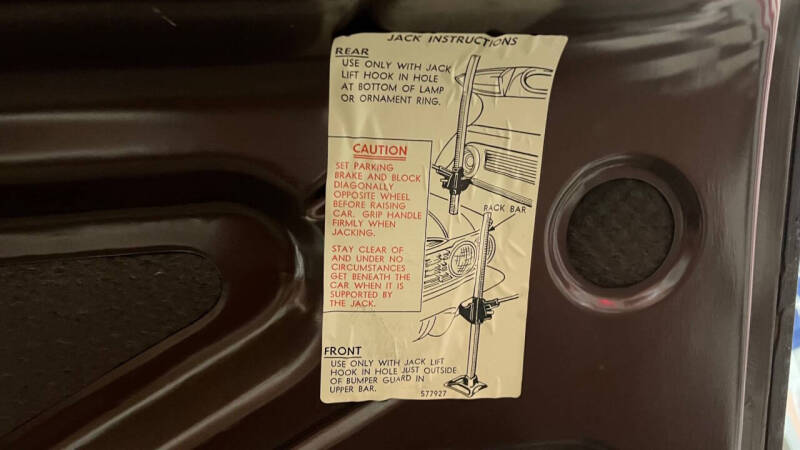 JACK INSTRUCTIONS
REAR
USE ONLY WITH JACK
LIFT HOOK IN HOLE
AT BOTTOM OF LAMP
OR ORNAMENT RING.
CAUTION
SET PARKING
BRAKE AND BLOCK
DIAGONALLY
OPPOSITE WHEEL
BEFORE RAISING
CAR. GRIP HANDLE
FIRMLY WHEN
JACKING.
STAY CLEAR OF
AND UNDER NO
CIRCUMSTANCES
GET BENEATH THE
CAR WHEN IT IS
SUPPORTED BY
THE JACK.
RACK BAR
FRONT
USE ONLY WITH JACK LIFT
HOOK IN HOLE JUST OUTSIDE
OF BUMPER GUARD IN
UPPER BAR.
577927